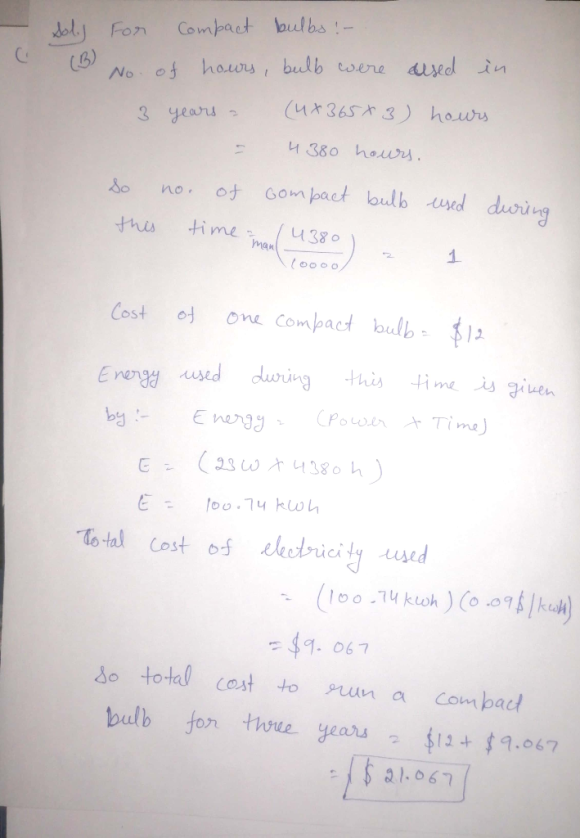 Sol.) For Compact bulbs :-
(B) No. of hours, bulb were used in
3 years = (4*365*3) hours
= 4380 hours.
So no. of compact bulb used during
this time = man(4380/10000) = 1
Cost of one compact bulb = $12
Energy used during this time is given
by :- Energy = (Power * Time)
E = (23W * 4380h)
E = 100.74 kwh
Total cost of electricity used
= (100.74 kwh) (0.09$/kwh)
= $9.067
So total cost to run a compact
bulb for three years = $12 + $9.067
= $21.067